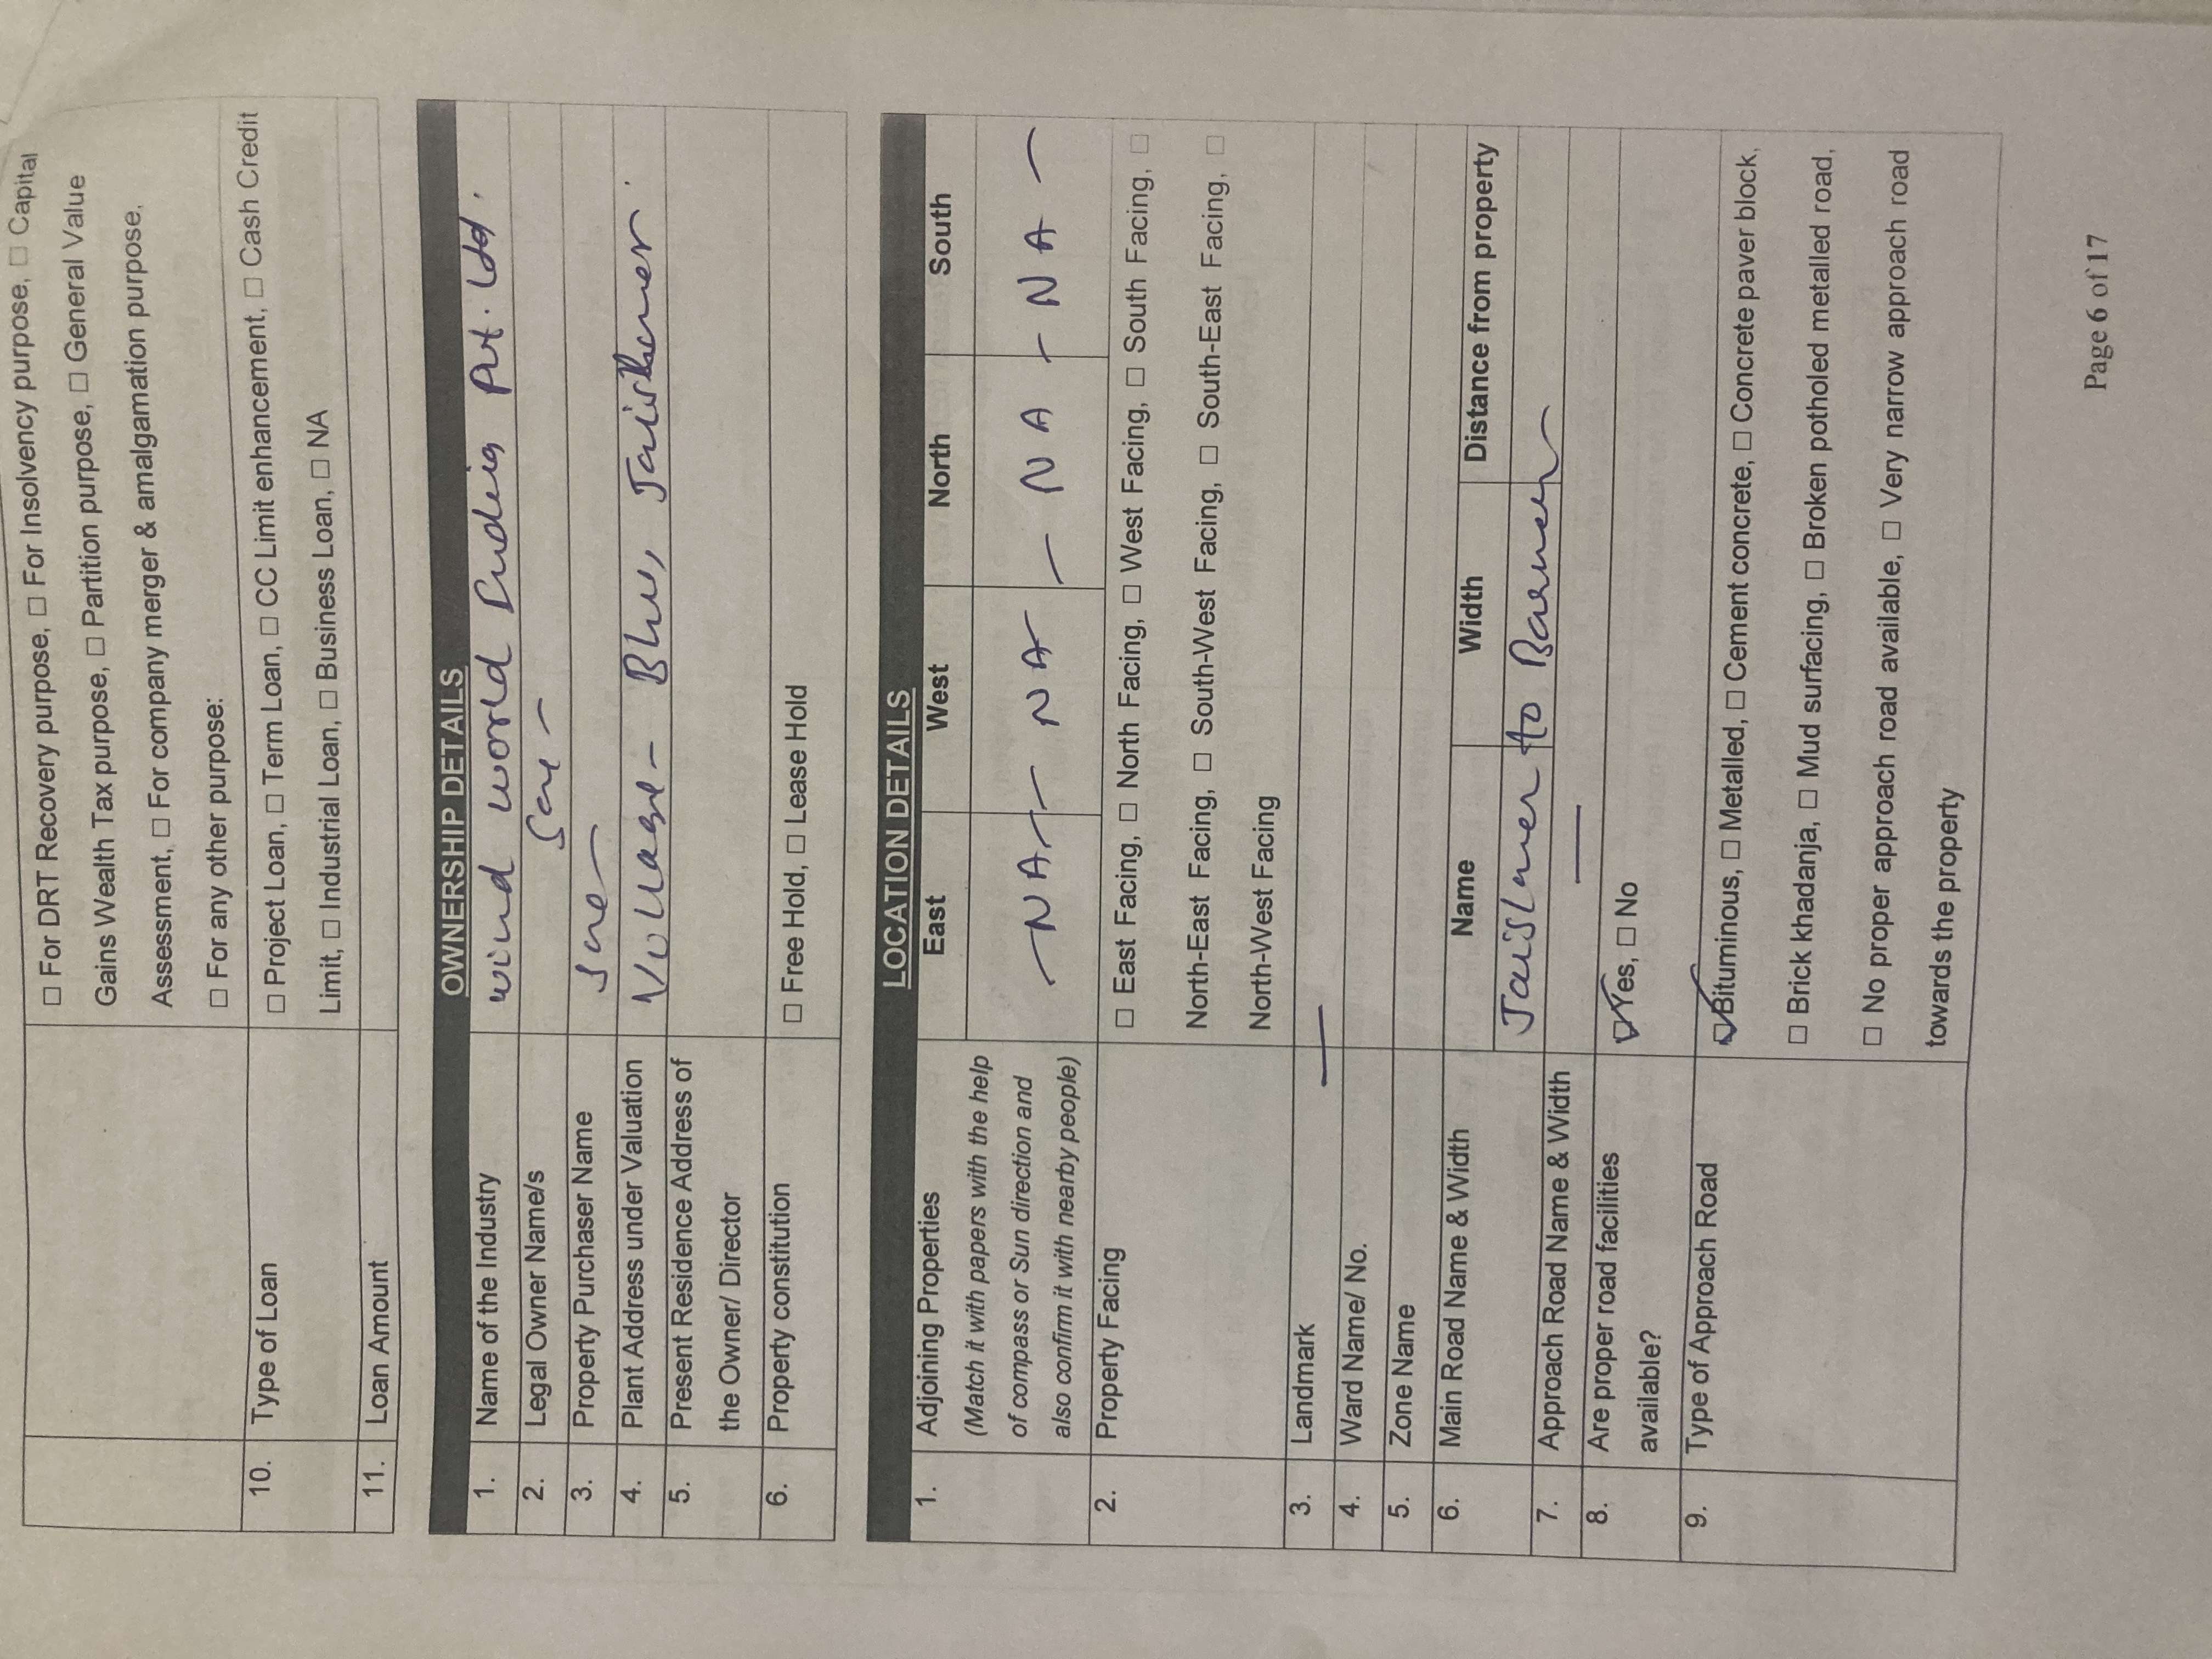 ☐ For DRT Recovery purpose, ☐ For Insolvency purpose, ☐ Capital
Gains Wealth Tax purpose, ☐ Partition purpose, ☐ General Value
Assessment, ☐ For company merger & amalgamation purpose.
☐ For any other purpose:
10. Type of Loan ☐ Project Loan, ☐ Term Loan, ☐ CC Limit enhancement, ☐ Cash Credit
Limit, ☐ Industrial Loan, ☐ Business Loan, ☐ NA
11. Loan Amount
OWNERSHIP DETAILS
1. Name of the Industry wind world India Pvt. Ltd.
2. Legal Owner Name/s
3. Property Purchaser Name
4. Plant Address under Valuation Village - Bhu, Jaisalmer.
5. Present Residence Address of
the Owner/ Director
6. Property constitution ☐ Free Hold, ☐ Lease Hold
LOCATION DETAILS
1. Adjoining Properties East West North South
(Match it with papers with the help
of compass or Sun direction and — NA — — NA — — NA — — NA —
also confirm it with nearby people)
2. Property Facing ☐ East Facing, ☐ North Facing, ☐ West Facing, ☐ South Facing, ☐
North-East Facing, ☐ South-West Facing, ☐ South-East Facing, ☐
North-West Facing
3. Landmark —
4. Ward Name/ No.
5. Zone Name
6. Main Road Name & Width Name Width Distance from property
Jaislmer to Barmer
7. Approach Road Name & Width —
8. Are proper road facilities ☑ Yes, ☐ No
available?
9. Type of Approach Road ☑ Bituminous, ☐ Metalled, ☐ Cement concrete, ☐ Concrete paver block,
☐ Brick khadanja, ☐ Mud surfacing, ☐ Broken potholed metalled road,
☐ No proper approach road available, ☐ Very narrow approach road
towards the property
Page 6 of 17